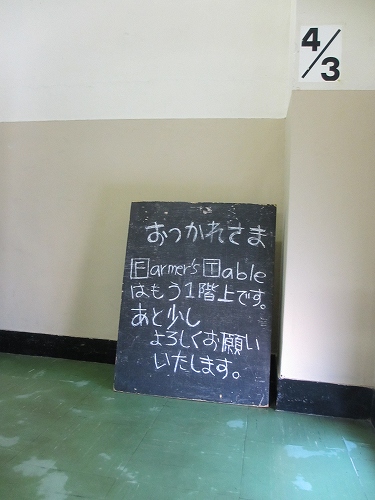 4/3
おつかれさま
Farmer's Table
はもう1階上です。
あと少し
よろしくお願い
いたします。